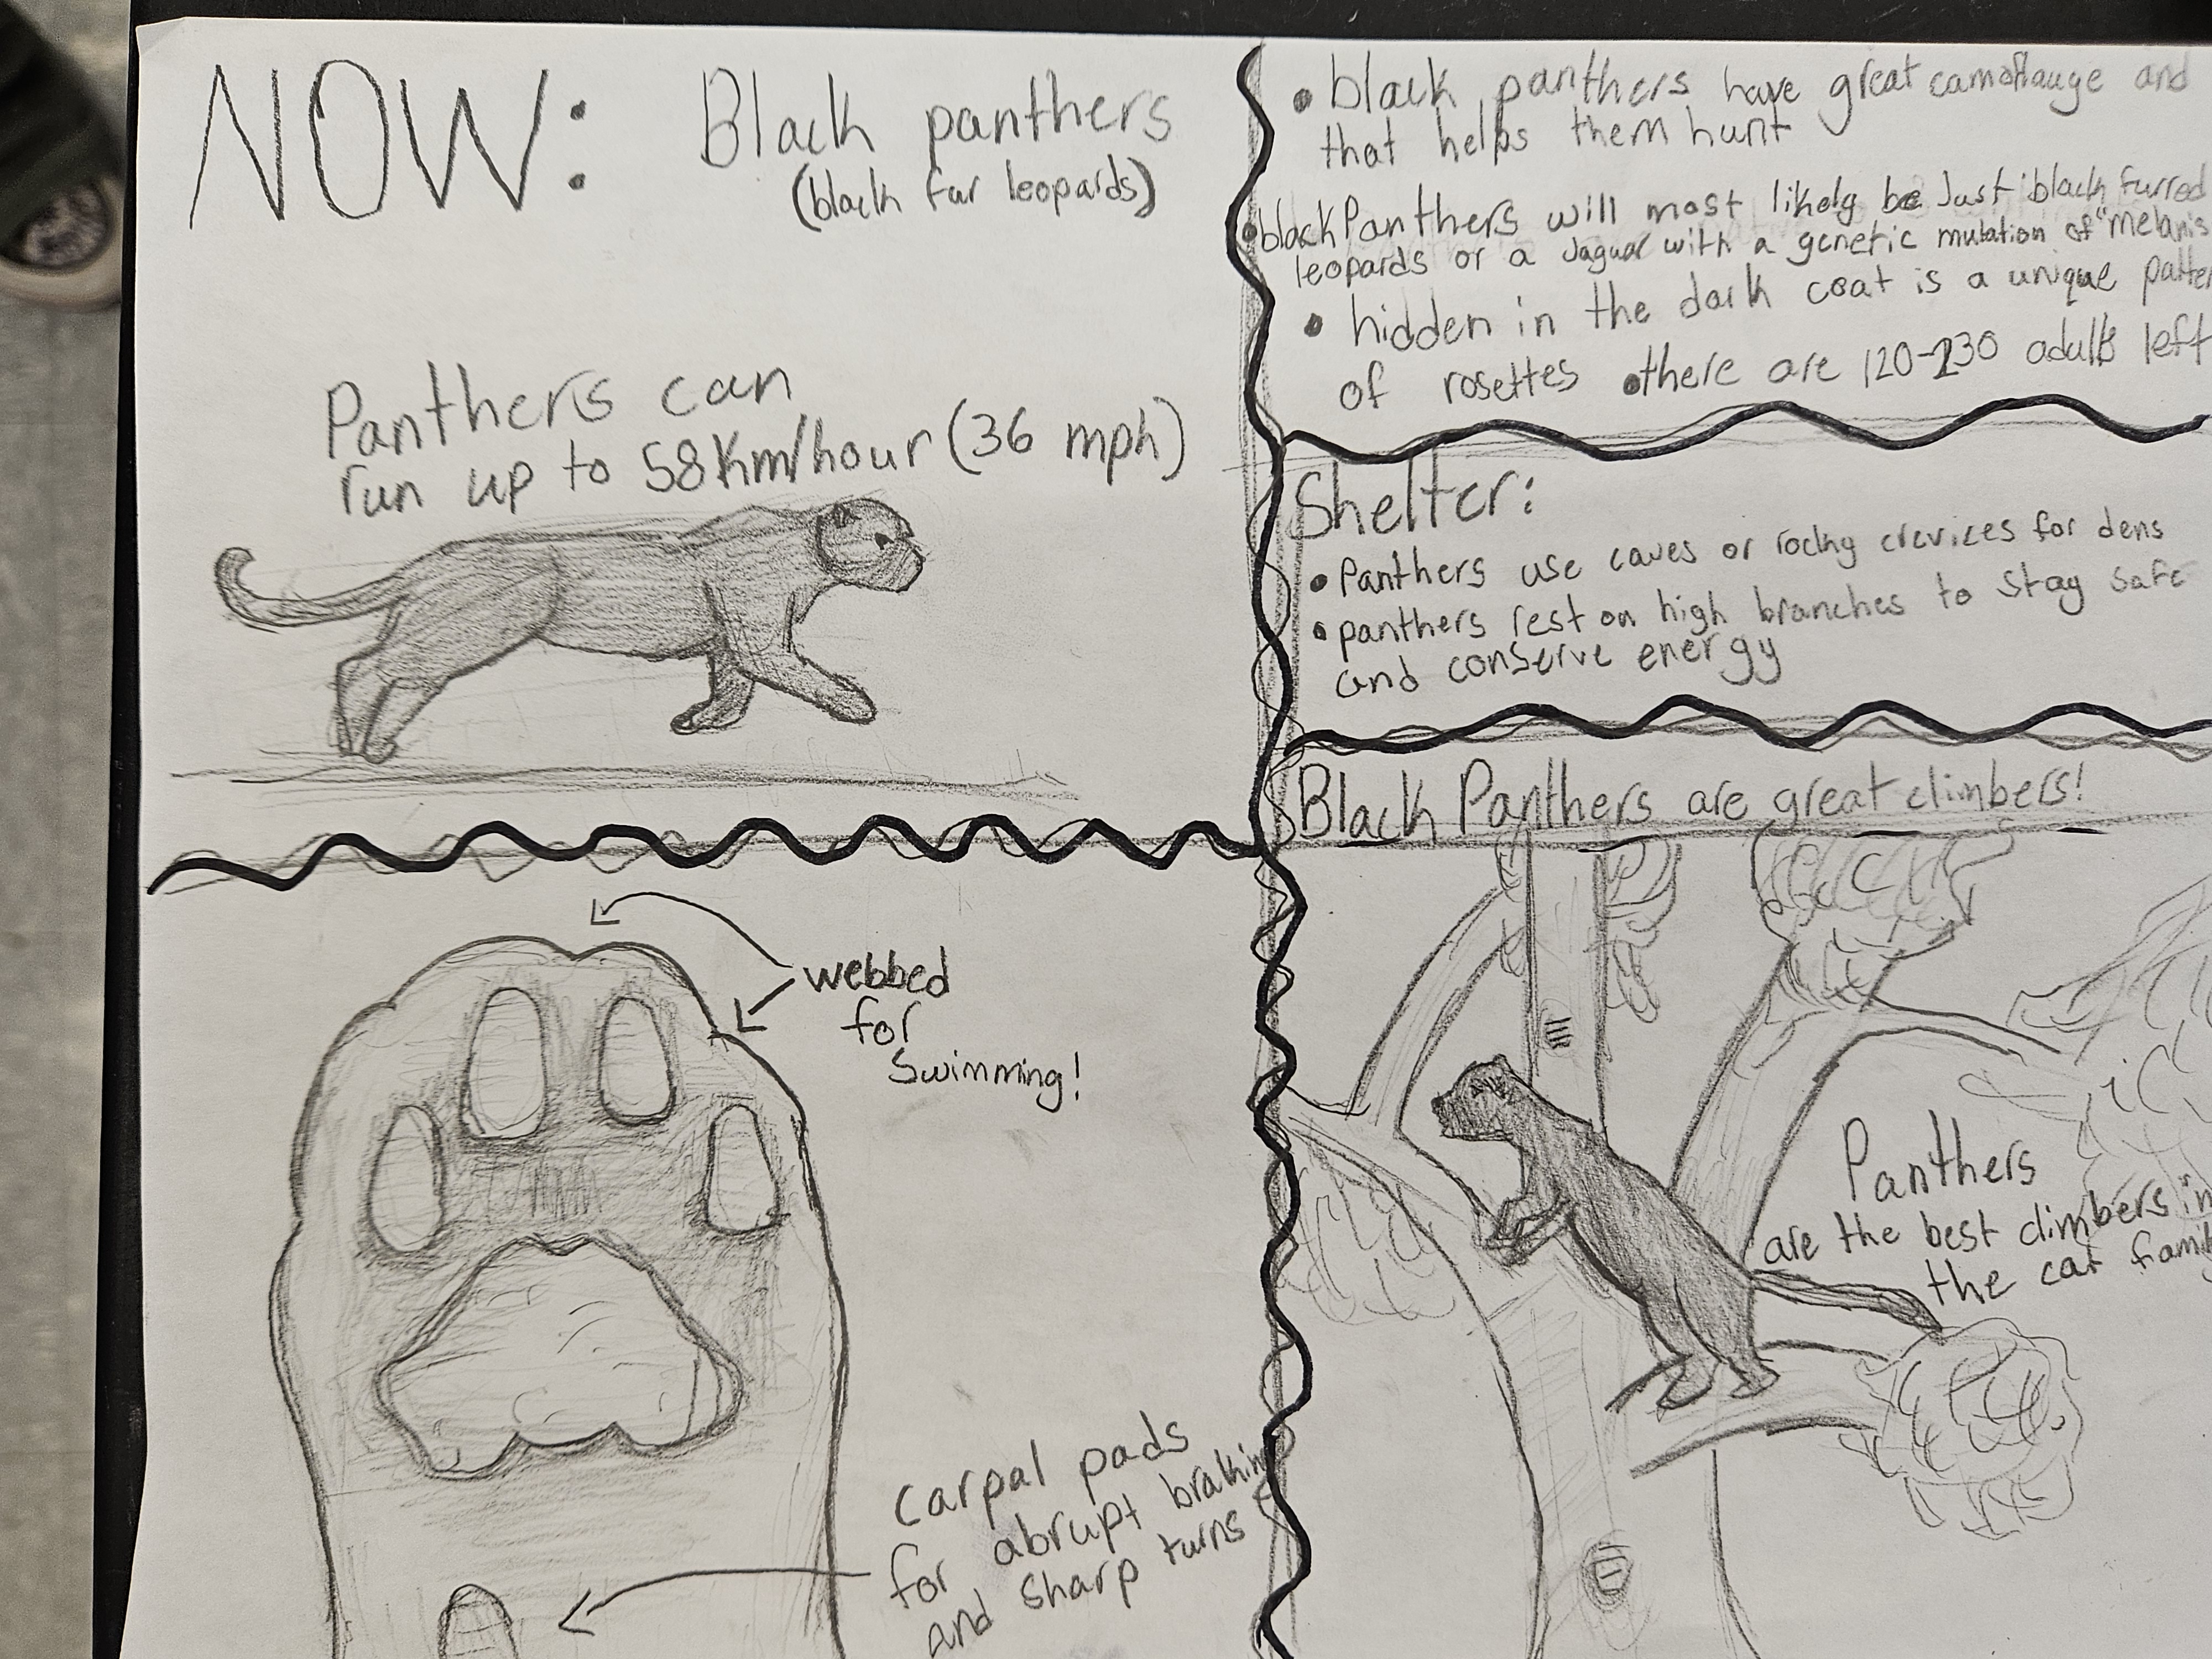 NOW: Black panthers
(black fur leopards)
Panthers can
run up to 58Km/hour (36 mph)
• black panthers have great camoflauge and
that helps them hunt
• black Panthers will most likely be Just black furred
leopards or a Jaguar with a genetic mutation of "melanis
• hidden in the dark coat is a unique patter
of rosettes • there are 120-230 adults left
Shelter:
• Panthers use caves or rocky crevices for dens
• panthers rest on high branches to stay safe
and conserve energy
Black Panthers are great climbers!
Panthers
are the best climbers in
the cat famil
webbed
for
Swimming!
carpal pads
for abrupt braking
and sharp turns